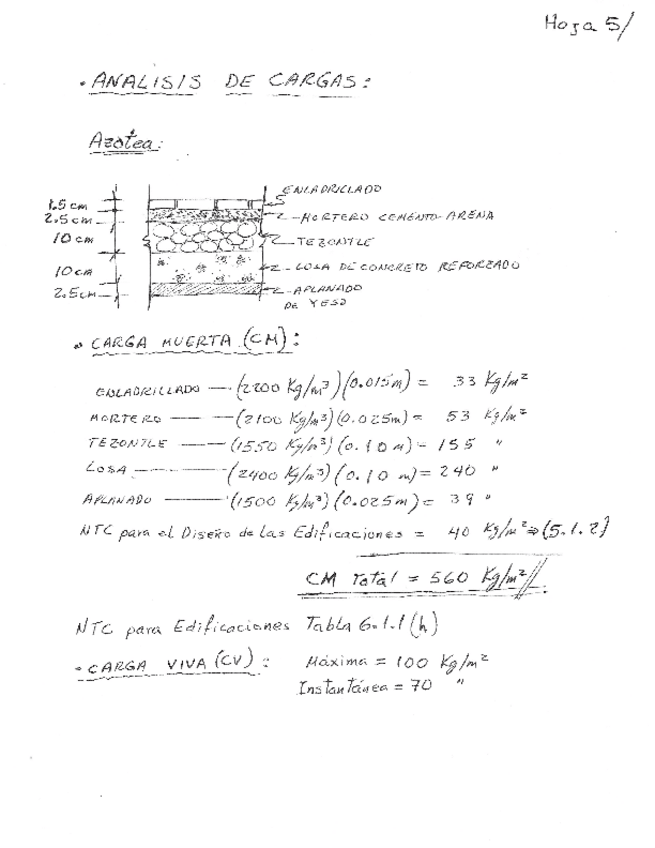 Hoja 5/
• ANALISIS DE CARGAS:
Azotea:
1.5 cm
2.5 cm
10 cm
10 cm
2.5 cm
ENLADRILLADO
MORTERO CEMENTO-ARENA
TEZONTLE
LOSA DE CONCRETO REFORZADO
APLANADO
DE YESO
• CARGA MUERTA (CM):
ENLADRILLADO — (2200 Kg/m³)(0.015m) = 33 Kg/m²
MORTERO — (2100 Kg/m³)(0.025m) = 53 Kg/m²
TEZONTLE — (1550 Kg/m³)(0.10 m) = 155 "
LOSA — (2400 Kg/m³)(0.10 m) = 240 "
APLANADO — (1500 Kg/m³)(0.025m) = 39 "
NTC para el Diseño de las Edificaciones = 40 Kg/m² ⇒ (5.1.2)
CM Total = 560 Kg/m²//
NTC para Edificaciones Tabla 6.1.1 (h)
• CARGA VIVA (CV): Máxima = 100 Kg/m²
Instantánea = 70 "